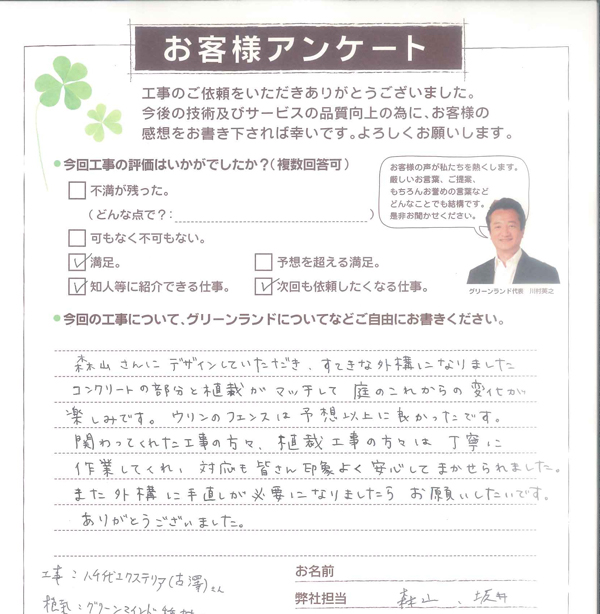 お客様アンケート
工事のご依頼をいただきありがとうございました。
今後の技術及びサービスの品質向上の為に、お客様の
感想をお書き下されば幸いです。よろしくお願いします。
今回工事の評価はいかがでしたか?(複数回答可)
不満が残った。
(どんな点で?: )
可もなく不可もない。
満足。
予想を超える満足。
知人等に紹介できる仕事。
次回も依頼したくなる仕事。
お客様の声が私たちを熱くします。
厳しいお言葉、ご提案、
もちろんお誉めの言葉など
どんなことでも結構です。
是非お聞かせください。
グリーンランド代表 川村英之
今回の工事について、グリーンランドについてなどご自由にお書きください。
森山さんにデザインしていただき、すてきな外構になりました
コンクリートの部分と植栽がマッチして 庭のこれからの変化が
楽しみです。ウリンのフェンスは予想以上に良かったです。
関わってくれた工事の方々、植栽工事の方々は丁寧に
作業してくれ、対応も皆さん印象よく安心してまかせられました。
また外構に手直しが必要になりましたら お願いしたいです。
ありがとうございました。
工事:八千代エクステリア(古澤)さん
お名前
弊社担当 森山、坂井
植栽:グリーンマインド